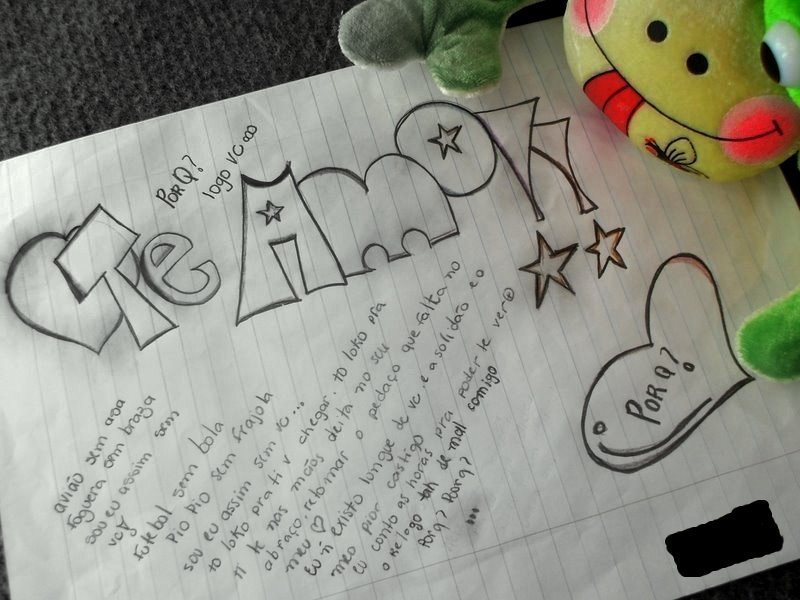 PORQ?
logo vc
Te Amo
avião sem asa
foguera sem braza
sou eu assim sem
vc
futebol sem bola
Pio Pio sem frajola
sou eu assim sim vc...
to loko pra ti v chegar. to loko pra
ti te nas mãos deita no seu
abraço. retomar o pedaço que falta no
meu
Eu ñ existo longue de vc. e a solidão e o
meo pior castigo
eu conto as horas pra poder te ver
o relogo tah de mal comigo
PorQ? PorQ?
...
PORQ?